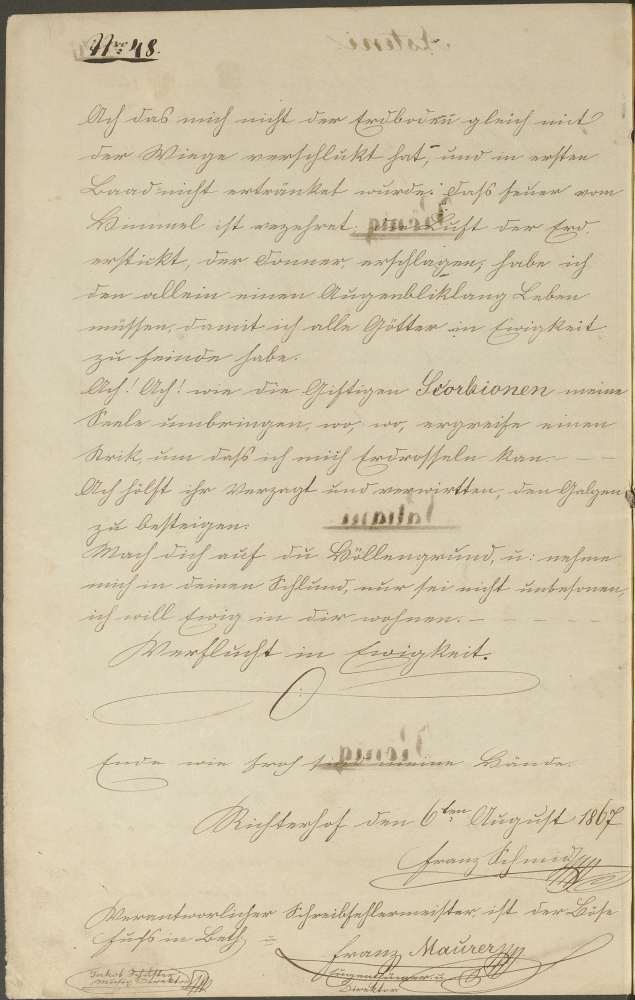 Nro 48.
Ach das mich nicht der Erdboden gleich mit
der Wiege verschlukt hat, und in ersten
Baad nicht ertränket wurde: daß feuer vom
Himmel ist vezehret, Luft der Erd,
erstickt, der Donner, erschlagen; habe ich
den allein einen Augenbliklang Leben
müssen, damit ich alle Götter in Ewigkeit
zu feinde habe.
Ach! Ach! wie die Giftigen Scorbionen meine
Seele umbringen, wo, wo, ergreife einen
Strik, um daß ich mich Erdrosseln kan. – –
Ach hölft ihr Verzagt und verwirtten, den Galgen
zu besteigen.
Mach dich auf du Höllengrund, u: nehme
mich in deinen Schlund, nur sei nicht unbesonen,
ich will Ewig in dir wohnen. – – – – –
Verflucht in Ewigkeit.
Ende wie froh sind meine Hände.
Richterhof den 6ten August 1867
Franz Schmid
Verantworlicher Schreibfehlermeister ist der Böse
Fuß in Beth =
Franz Maurer
Jakob
Musig Direktor
Eigenthümer u.
Direktor